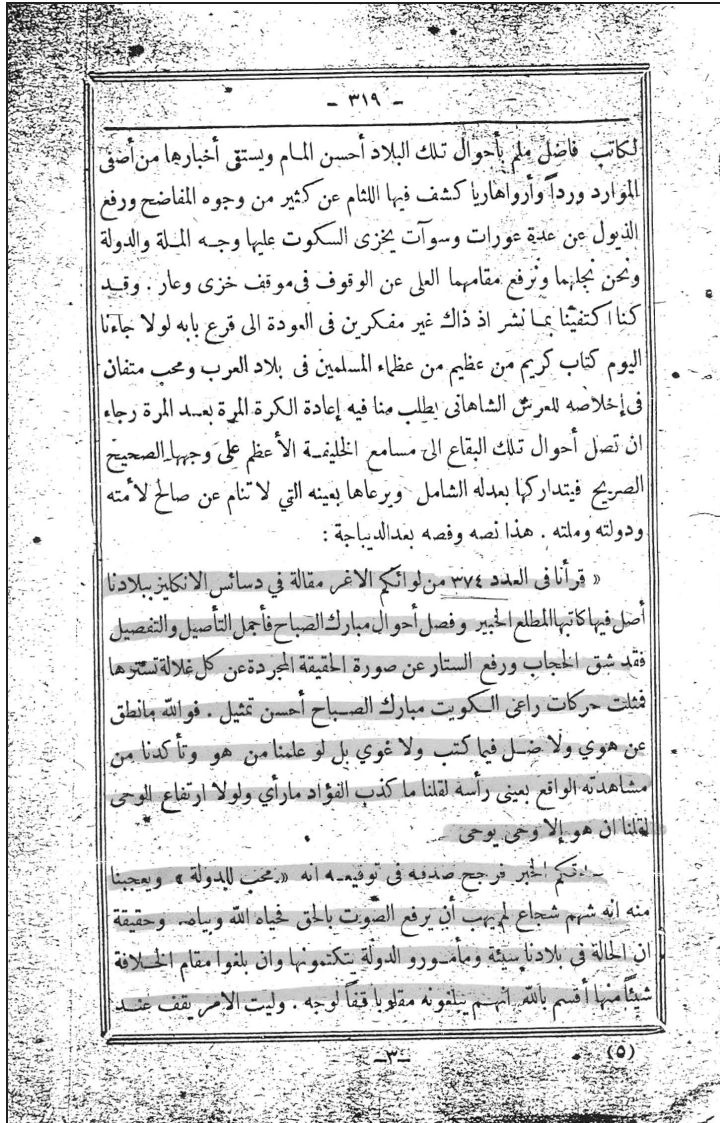 - ٣١٩ -
لكاتب فاضل ملم بأحوال تلك البلاد أحسن المام ويستقى أخبارها من أصفى
الموارد ورداً وأرواها ريا كشف فيها اللثام عن كثير من وجوه المفاضح ورفع
الذيول عن عدة عورات وسوآت يخزى السكوت عليها وجه الملة والدولة
ونحن نجلهما ونرفع مقامهما العلى عن الوقوف فى موقف خزى وعار . وقد
كنا اكتفينا بما نشر اذ ذاك غير مفكرين فى العودة الى قرع بابه لولا جاءنا
اليوم كتاب كريم من عظيم من عظماء المسلمين فى بلاد العرب ومحب متفان
فى إخلاصه للعرش الشاهانى يطلب منا فيه إعادة الكرة المرة بعد المرة رجاء
ان تصل أحوال تلك البقاع الى مسامع الخليفة الأعظم على وجهها الصحيح
الصريح فيتداركها بعدله الشامل ويرعاها بعينه التي لا تنام عن صالح لأمته
ودولته وملته . هذا نصه وفصه بعد الديباجة :
« قرأنا فى العدد ٣٧٤ من لوائكم الاغر مقالة في دسائس الانكليز ببلادنا
أصل فيها كاتبها المطلع الخبير وفصل أحوال مبارك الصباح فأجمل التأصيل والتفصيل
فقد شق الحجاب ورفع الستار عن صورة الحقيقة المجردة عن كل غلالة تسترها
فمثلت حركات راعى الكويت مبارك الصباح أحسن تمثيل . فوالله مانطق
عن هوي ولا ضل فيما كتب ولا غوي بل لو علمنا من هو وتأكدنا من
مشاهدته الواقع بعينى رأسه لقلنا ما كذب الفؤاد مارأي ولولا ارتفاع الوحى
لقلنا ان هو إلا وحى يوحى
الخبر فرجح صدقه فى توقيعه انه « محب للدولة » ويعجبنا
منه انه شهم شجاع لم يهب أن يرفع الصوت بالحق فحياه الله وبياه وحقيقة
ان الحالة في بلادنا سيئة ومأمورو الدولة يتكتمونها وان بلغوا مقام الخلافة
شيئاً منها أقسم بالله انهم يبلغونه مقلوبا قفاً لوجه . وليت الامر يقف عند
(٥)
-٣-